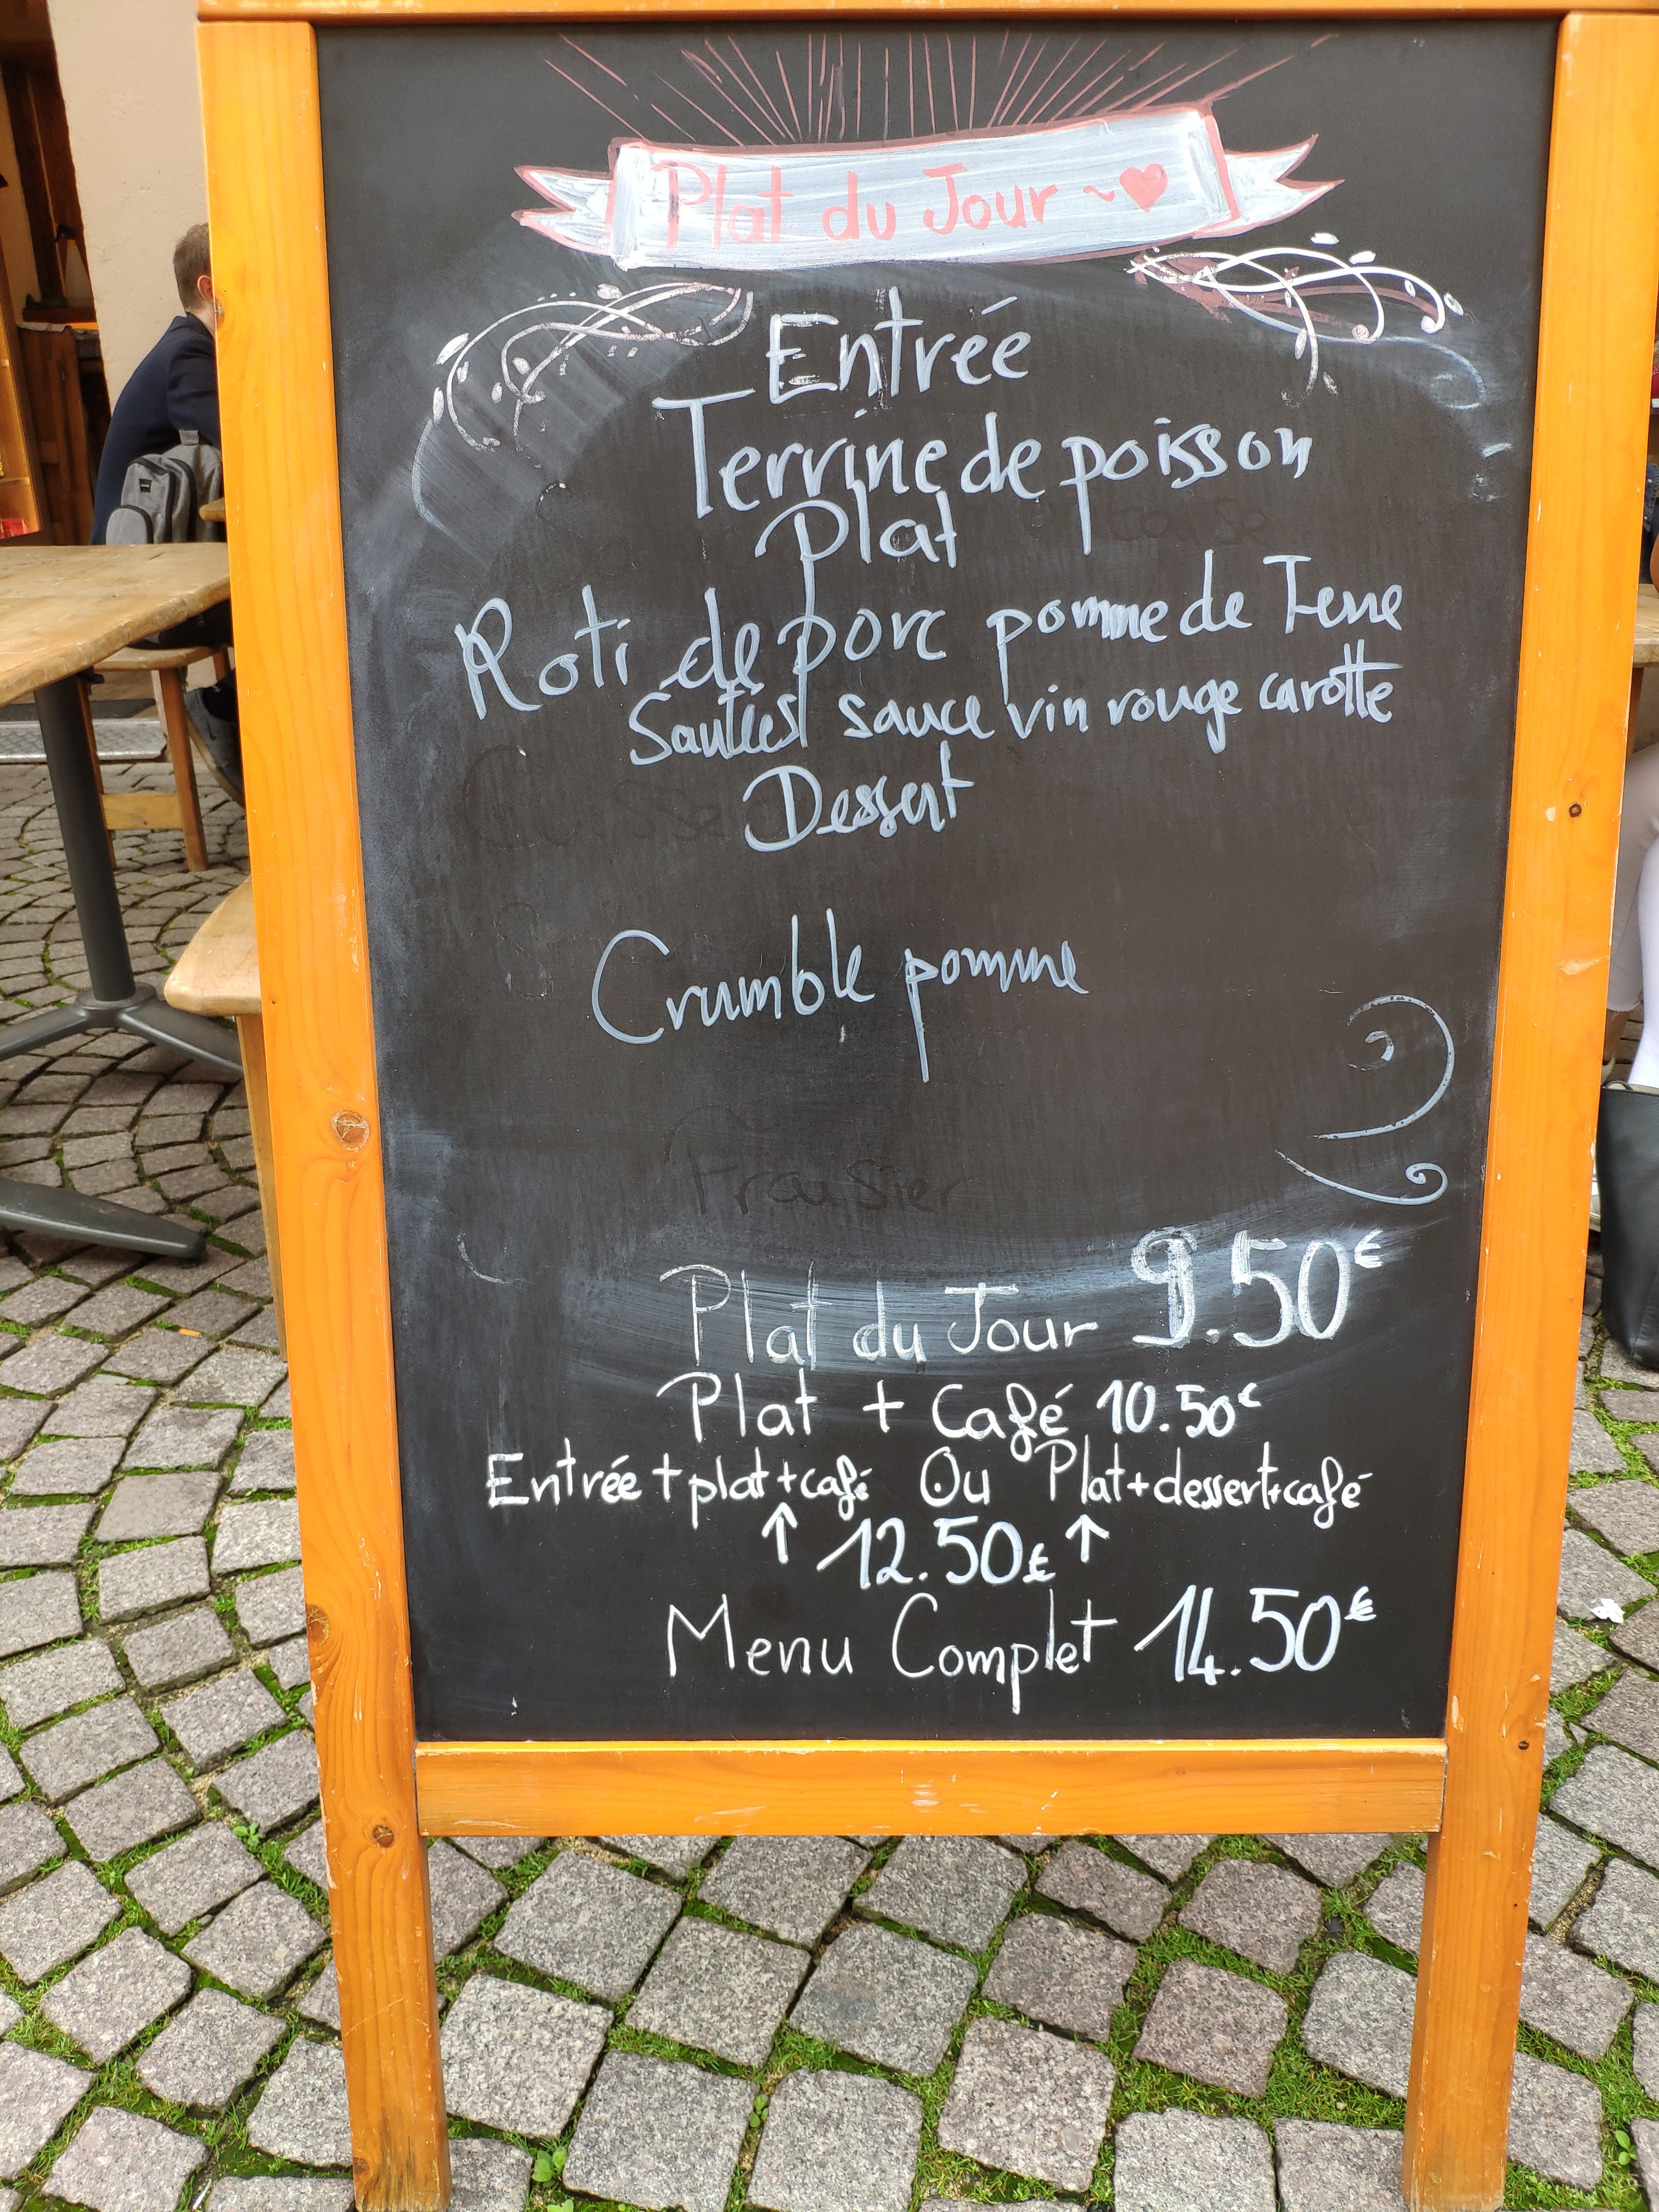 Plat du Jour ~ ♥
Entrée
Terrine de poisson
Plat
Roti de porc pomme de Terre
Sautées sauce vin rouge carotte
Dessert
Crumble pomme
Fraisier
Plat du Jour 9.50€
Plat + Café 10.50€
Entrée + plat + café Ou Plat + dessert + café
↑ 12.50€ ↑
Menu Complet 14.50€